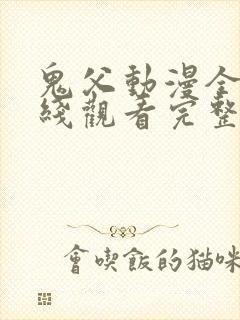 鬼父動漫全
綫觀看完整
會喫飯的貓咪